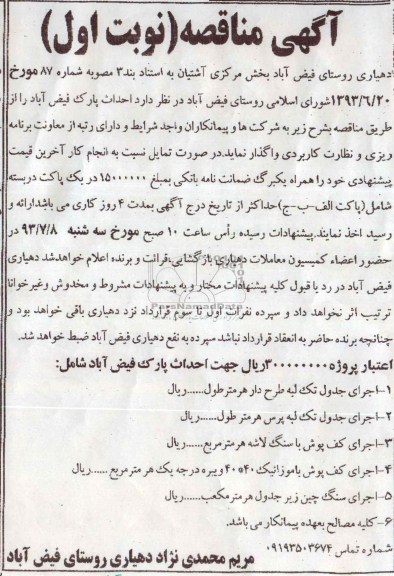 آگهی مناقصه(نوبت اول)
دهیاری روستای فیض آباد بخش مرکزی آشتیان به استناد بند۳ مصوبه شماره ۸۷ مورخ
۱۳۹۳/۶/۲۰شورای اسلامی روستای فیض آباد در نظر دارد احداث پارک فیض آباد را از
طریق مناقصه بشرح زیر به شرکت ها و پیمانکاران واجد شرایط و دارای رتبه از معاونت برنامه
ریزی و نظارت کاربردی واگذار نماید.در صورت تمایل نسبت به انجام کار آخرین قیمت
پیشنهادی خود را همراه یکبرگ ضمانت نامه بانکی بمبلغ ۱۵۰۰۰۰۰۰ در یک پاکت دربسته
شامل(پاکت الف-ب-ج)حداکثر از تاریخ درج آگهی بمدت ۴ روز کاری می باشدارائه و
رسید اخذ نمایند.پیشنهادات رسیده رأس ساعت ۱۰ صبح مورخ سه شنبه ۹۳/۷/۸ در
حضور اعضاء کمسیون معاملات دهیاری بازگشایی،قرائت و برنده اعلام خواهدشد دهیاری
فیض آباد در رد یا قبول کلیه پیشنهادات مختار و به پیشنهادات مشروط و مخدوش وغیرخوانا
ترتیب اثر نخواهد داد و سپرده نفرات اول تا سوم قرارداد نزد دهیاری باقی خواهد بود و
چنانچه برنده حاضر به انعقاد قرارداد نباشد سپرده به نفع دهیاری فیض آباد ضبط خواهد شد.
اعتبار پروژه ۳۰۰۰۰۰۰۰۰ریال جهت احداث پارک فیض آباد شامل:
۱-اجرای جدول تک لبه طرح دار هر متر طول......ریال
۲-اجرای جدول تک لبه پرس هر متر طول......ریال
۳-اجرای کف پوش با سنگ لاشه هر متر مربع......ریال
۴-اجرای کف پوش باموزائیک ۴۰*۴۰ ویبره درجه یک هر متر مربع ......ریال
۵-اجرای سنگ چین زیر جدول هر متر مکعب......ریال
۶-کلیه مصالح بعهده پیمانکار می باشد.
شماره تماس ۰۹۱۹۳۵۰۳۶۷۴
مریم محمدی نژاد دهیاری روستای فیض آباد